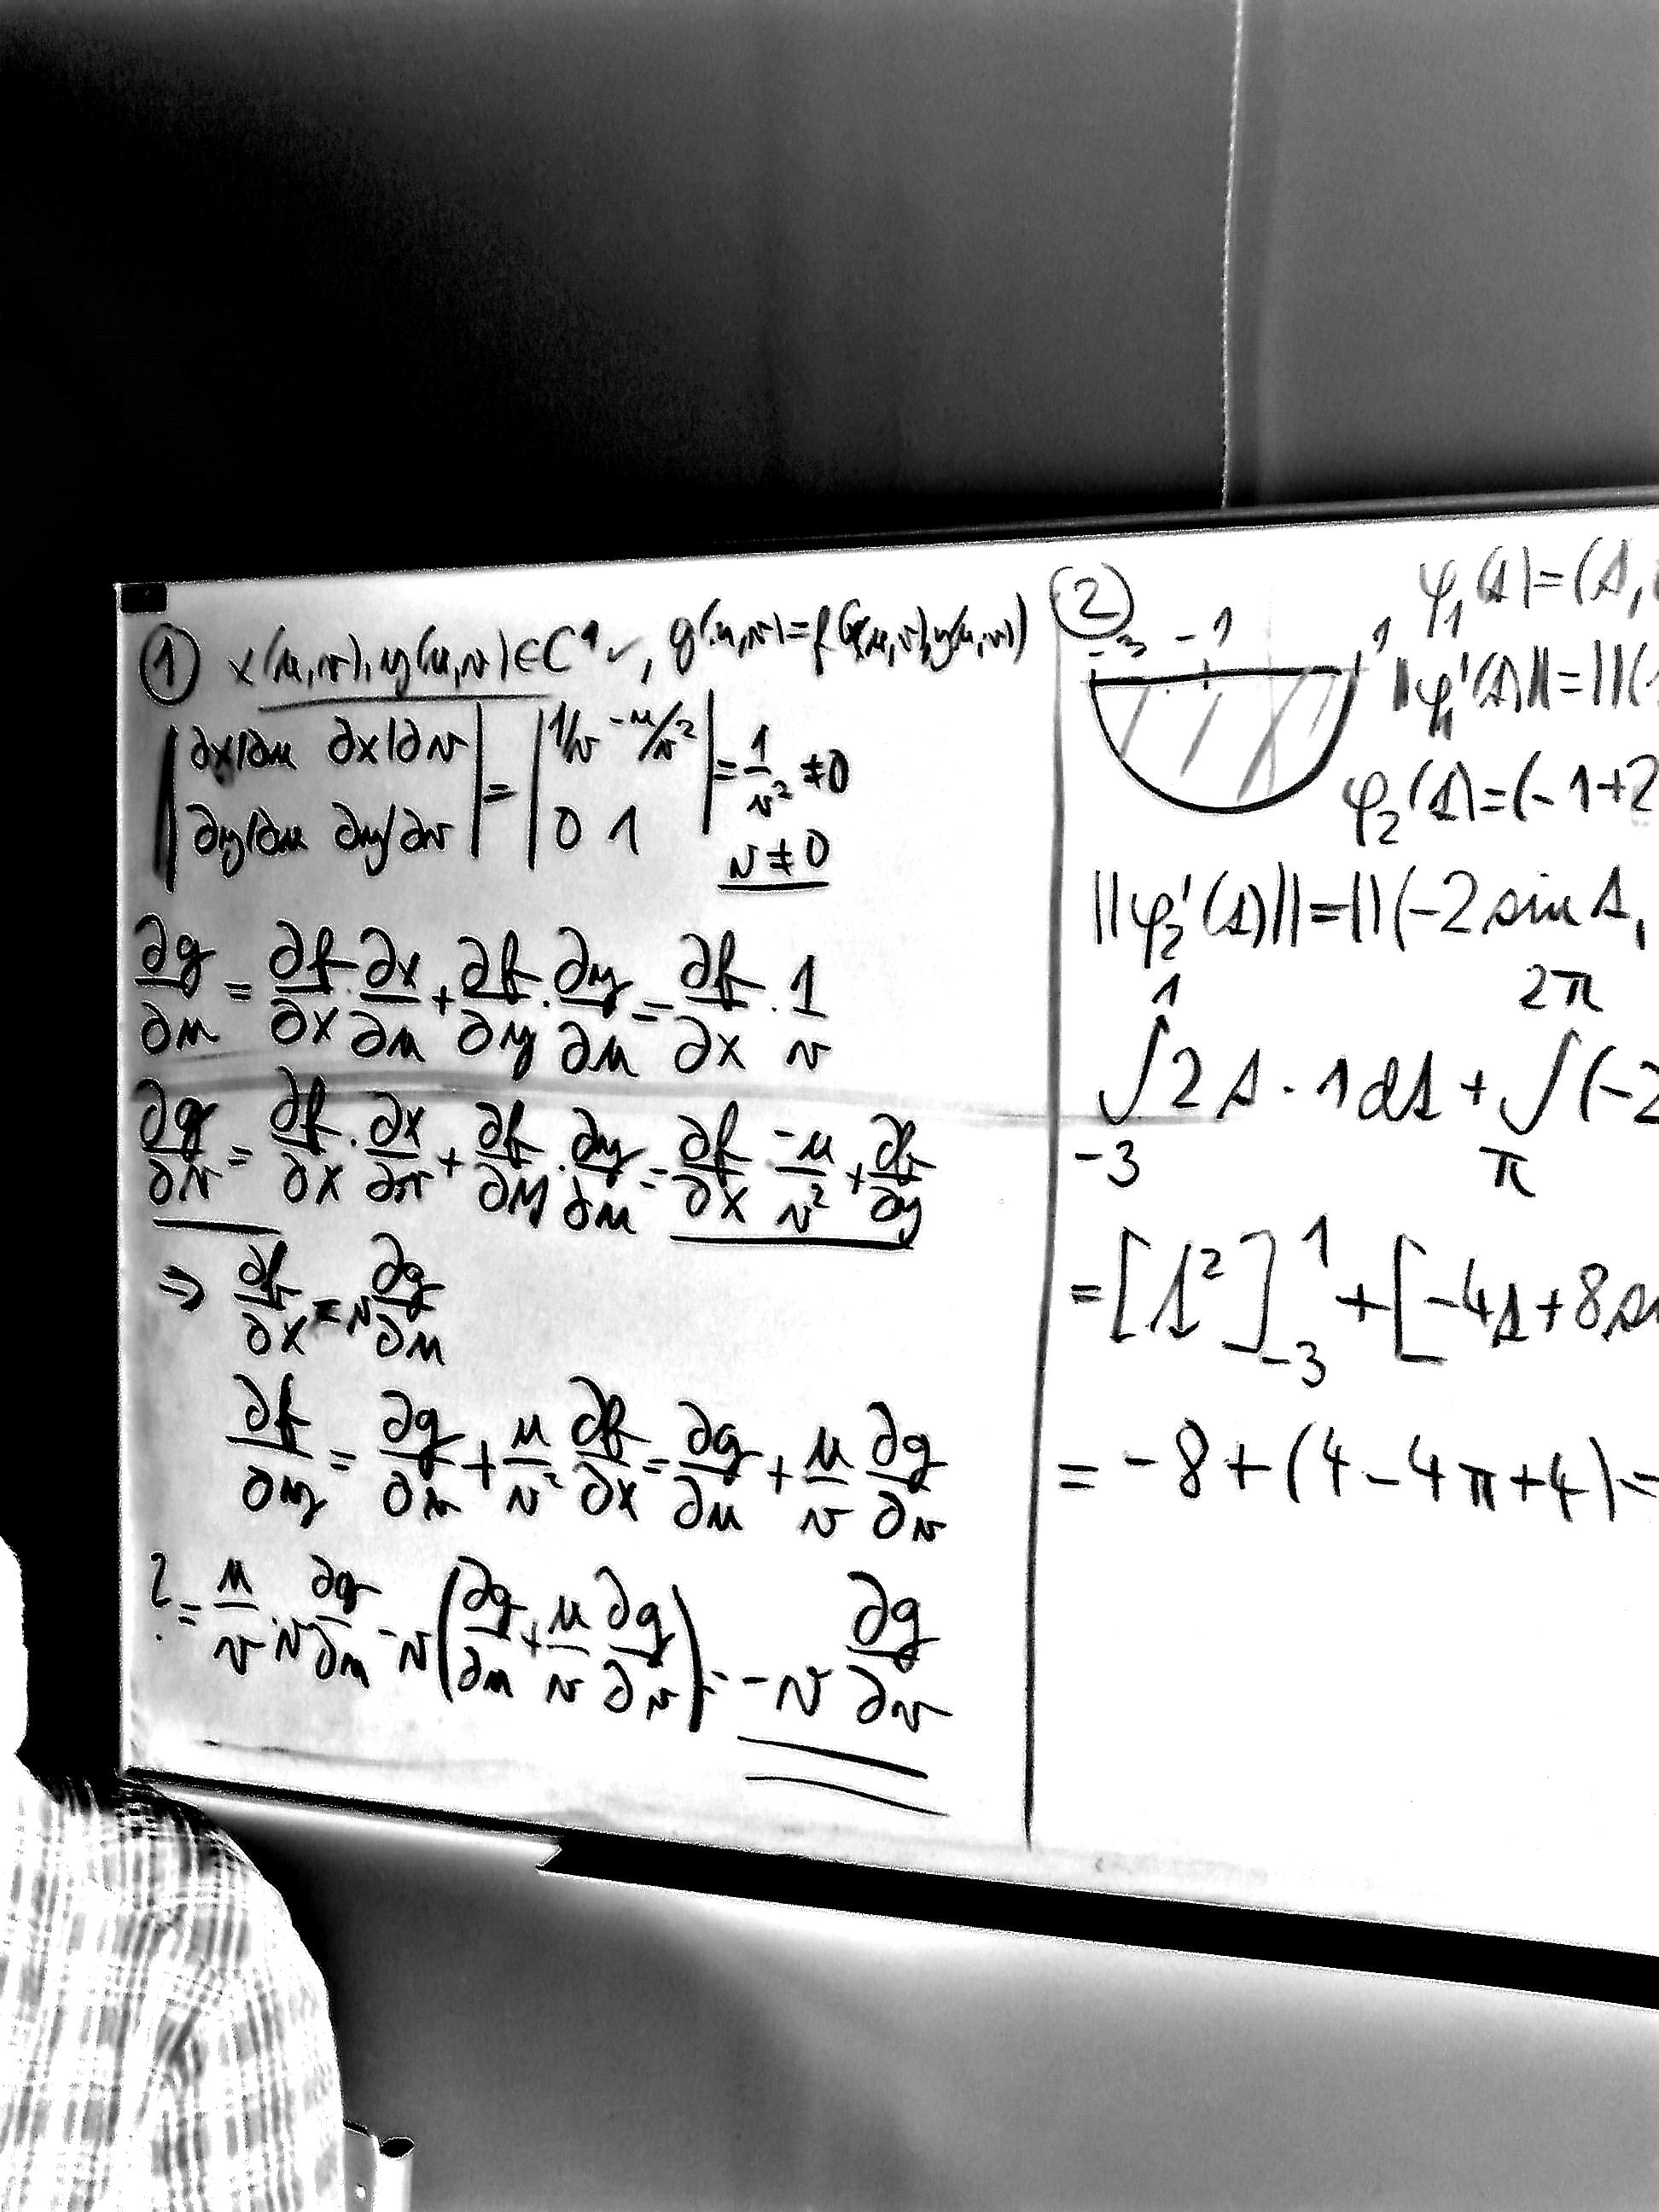 ① x(u,v), y(u,v) ∈ C¹ ✓, g(u,v) = f(x(u,v), y(u,v))
|∂x/∂u ∂x/∂v| = |1/v -u/v²| = 1/v² ≠ 0
|∂y/∂u ∂y/∂v| |0 1| v ≠ 0
∂g/∂u = ∂f/∂x · ∂x/∂u + ∂f/∂y · ∂y/∂u = ∂f/∂x · 1/v
∂g/∂v = ∂f/∂x · ∂x/∂v + ∂f/∂y · ∂y/∂u = ∂f/∂x · -u/v² + ∂f/∂y
⇒ ∂f/∂x = v ∂g/∂u
∂f/∂y = ∂g/∂v + u/v² ∂f/∂x = ∂g/∂u + u/v ∂g/∂v
? = u/v · v ∂g/∂u - v(∂g/∂u + u/v ∂g/∂v) = -v ∂g/∂v
②
-3 -1 1
φ₁(s) = (s,
||φ₁'(s)|| = ||(
φ₂(s) = (-1+2
||φ₂'(s)|| = ||(-2 sin s,
∫_{-3}^{1} 2s · 1 ds + ∫_{π}^{2π} (-2
= [s²]_{-3}^{1} + [-4s + 8
= -8 + (4 - 4π + 4) =